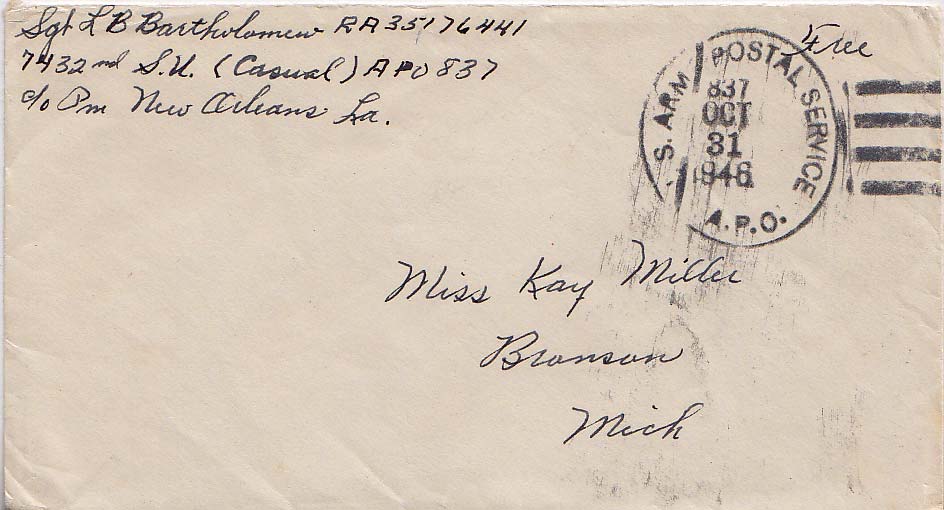 Sgt L B Bartholomew RA35176441
7432nd S.U. (Casual) APO 837
c/o Pm New Orleans La.
Free
S. ARM POSTAL SERVICE
837
OCT
31
1946
A.P.O.
Miss Kay Miller
Bronson
Mich